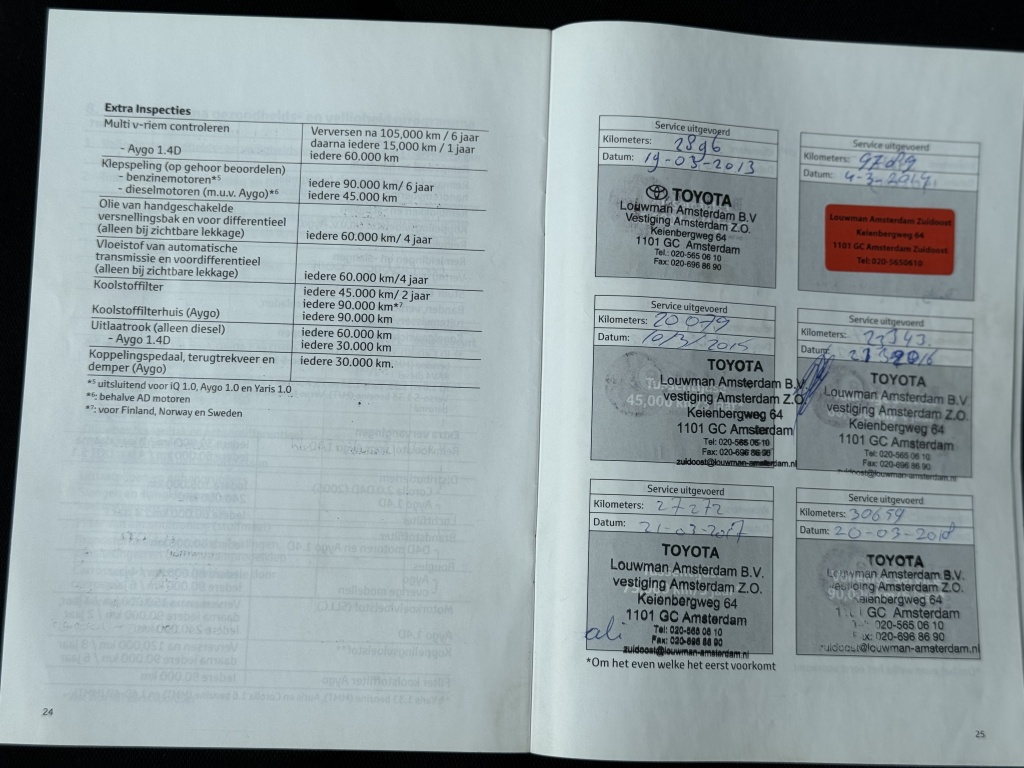 Extra Inspecties
Multi v-riem controleren
- Aygo 1.4D
Verversen na 105,000 km / 6 jaar
daarna iedere 15,000 km / 1 jaar
iedere 60.000 km
Klepspeling (op gehoor beoordelen)
- benzinemotoren*5
- dieselmotoren (m.u.v. Aygo)*6
iedere 90.000 km/ 6 jaar
iedere 45.000 km
Olie van handgeschakelde
versnellingsbak en voor differentieel
(alleen bij zichtbare lekkage)
iedere 60.000 km/ 4 jaar
Vloeistof van automatische
transmissie en voordifferentieel
(alleen bij zichtbare lekkage)
iedere 60.000 km/4 jaar
Koolstoffilter
Koolstoffilterhuis (Aygo)
iedere 45.000 km/ 2 jaar
iedere 90.000 km*7
iedere 90.000 km
Uitlaatrook (alleen diesel)
- Aygo 1.4D
iedere 60.000 km
iedere 30.000 km
Koppelingspedaal, terugtrekveer en
demper (Aygo)
iedere 30.000 km.
*5 uitsluitend voor iQ 1.0, Aygo 1.0 en Yaris 1.0
*6: behalve AD motoren
*7: voor Finland, Norway en Sweden
24
Service uitgevoerd
Kilometers: 2896
Datum: 19-03-2013
TOYOTA
Louwman Amsterdam B.V
Vestiging Amsterdam Z.O.
Keienbergweg 64
1101 GC Amsterdam
Tel.: 020-565 06 10
Fax: 020-696 86 90
Service uitgevoerd
Kilometers:
Datum: 4-3-2014
Louwman Amsterdam Zuidoost
Keienbergweg 64
1101 GC Amsterdam Zuidoost
Tel: 020-5650610
Service uitgevoerd
Kilometers: 20079
Datum: 10/3/2015
45,000
TOYOTA
Louwman Amsterdam B.V.
vestiging Amsterdam Z.O.
Keienbergweg 64
1101 GC Amsterdam
Tel: 020-565 06 10
Fax: 020-696 86 90
zuidoost@louwman-amsterdam.nl
Service uitgevoerd
Kilometers:
Datum:
TOYOTA
Louwman Amsterdam B.V.
vestiging Amsterdam Z.O.
Keienbergweg 64
1101 GC Amsterdam
Tel: 020-565 06 10
Fax: 020-696 86 90
zuidoost@louwman-amsterdam.nl
Service uitgevoerd
Kilometers: 27272
Datum: 21-03-2017
TOYOTA
Louwman Amsterdam B.V.
vestiging Amsterdam Z.O.
Keienbergweg 64
1101 GC Amsterdam
Tel: 020-565 06 10
Fax: 020-696 86 90
zuidoost@louwman-amsterdam.nl
ali
Service uitgevoerd
Kilometers: 30659
Datum: 20-03-2018
90,0
TOYOTA
Louwman Amsterdam B.V.
vestiging Amsterdam Z.O.
Keienbergweg 64
GC Amsterdam
020-565 06 10
020-696 86 90
zuidoost@louwman-amsterdam.nl
*Om het even welke het eerst voorkomt
25